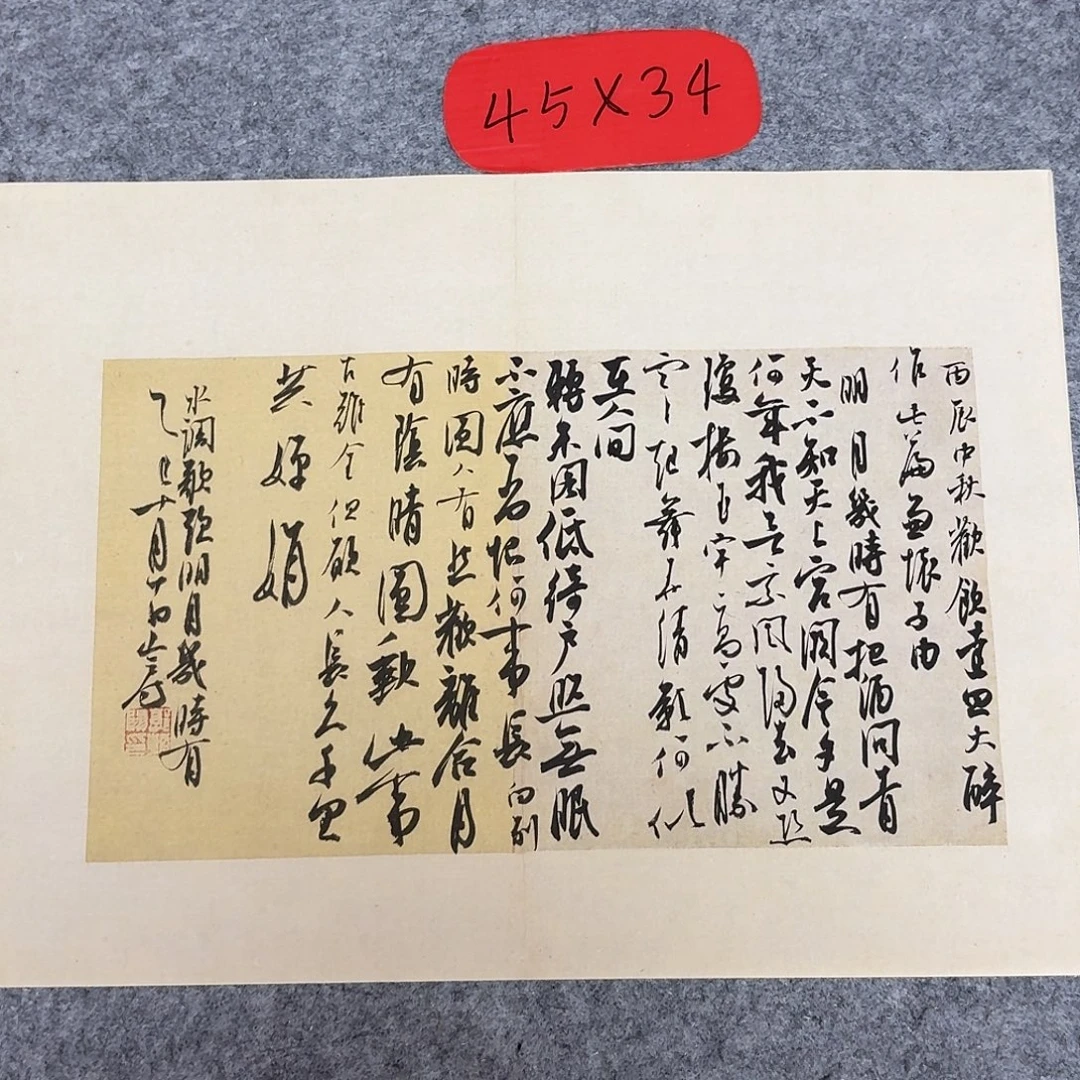 45X34
丙辰中秋歡飲達旦大醉
作此篇兼懷子由
明月幾時有把酒問青
天不知天上宮闕今夕是
何年我欲乘風歸去又恐
瓊樓玉宇高處不勝
寒起舞弄清影何似
在人間
轉朱閣低綺戶照無眠
不應有恨何事長向別
時圓人有悲歡離合月
有陰晴圓缺此事
古難全但願人長久千里
共嬋娟
水調歌頭明月幾時有
乙巳十月